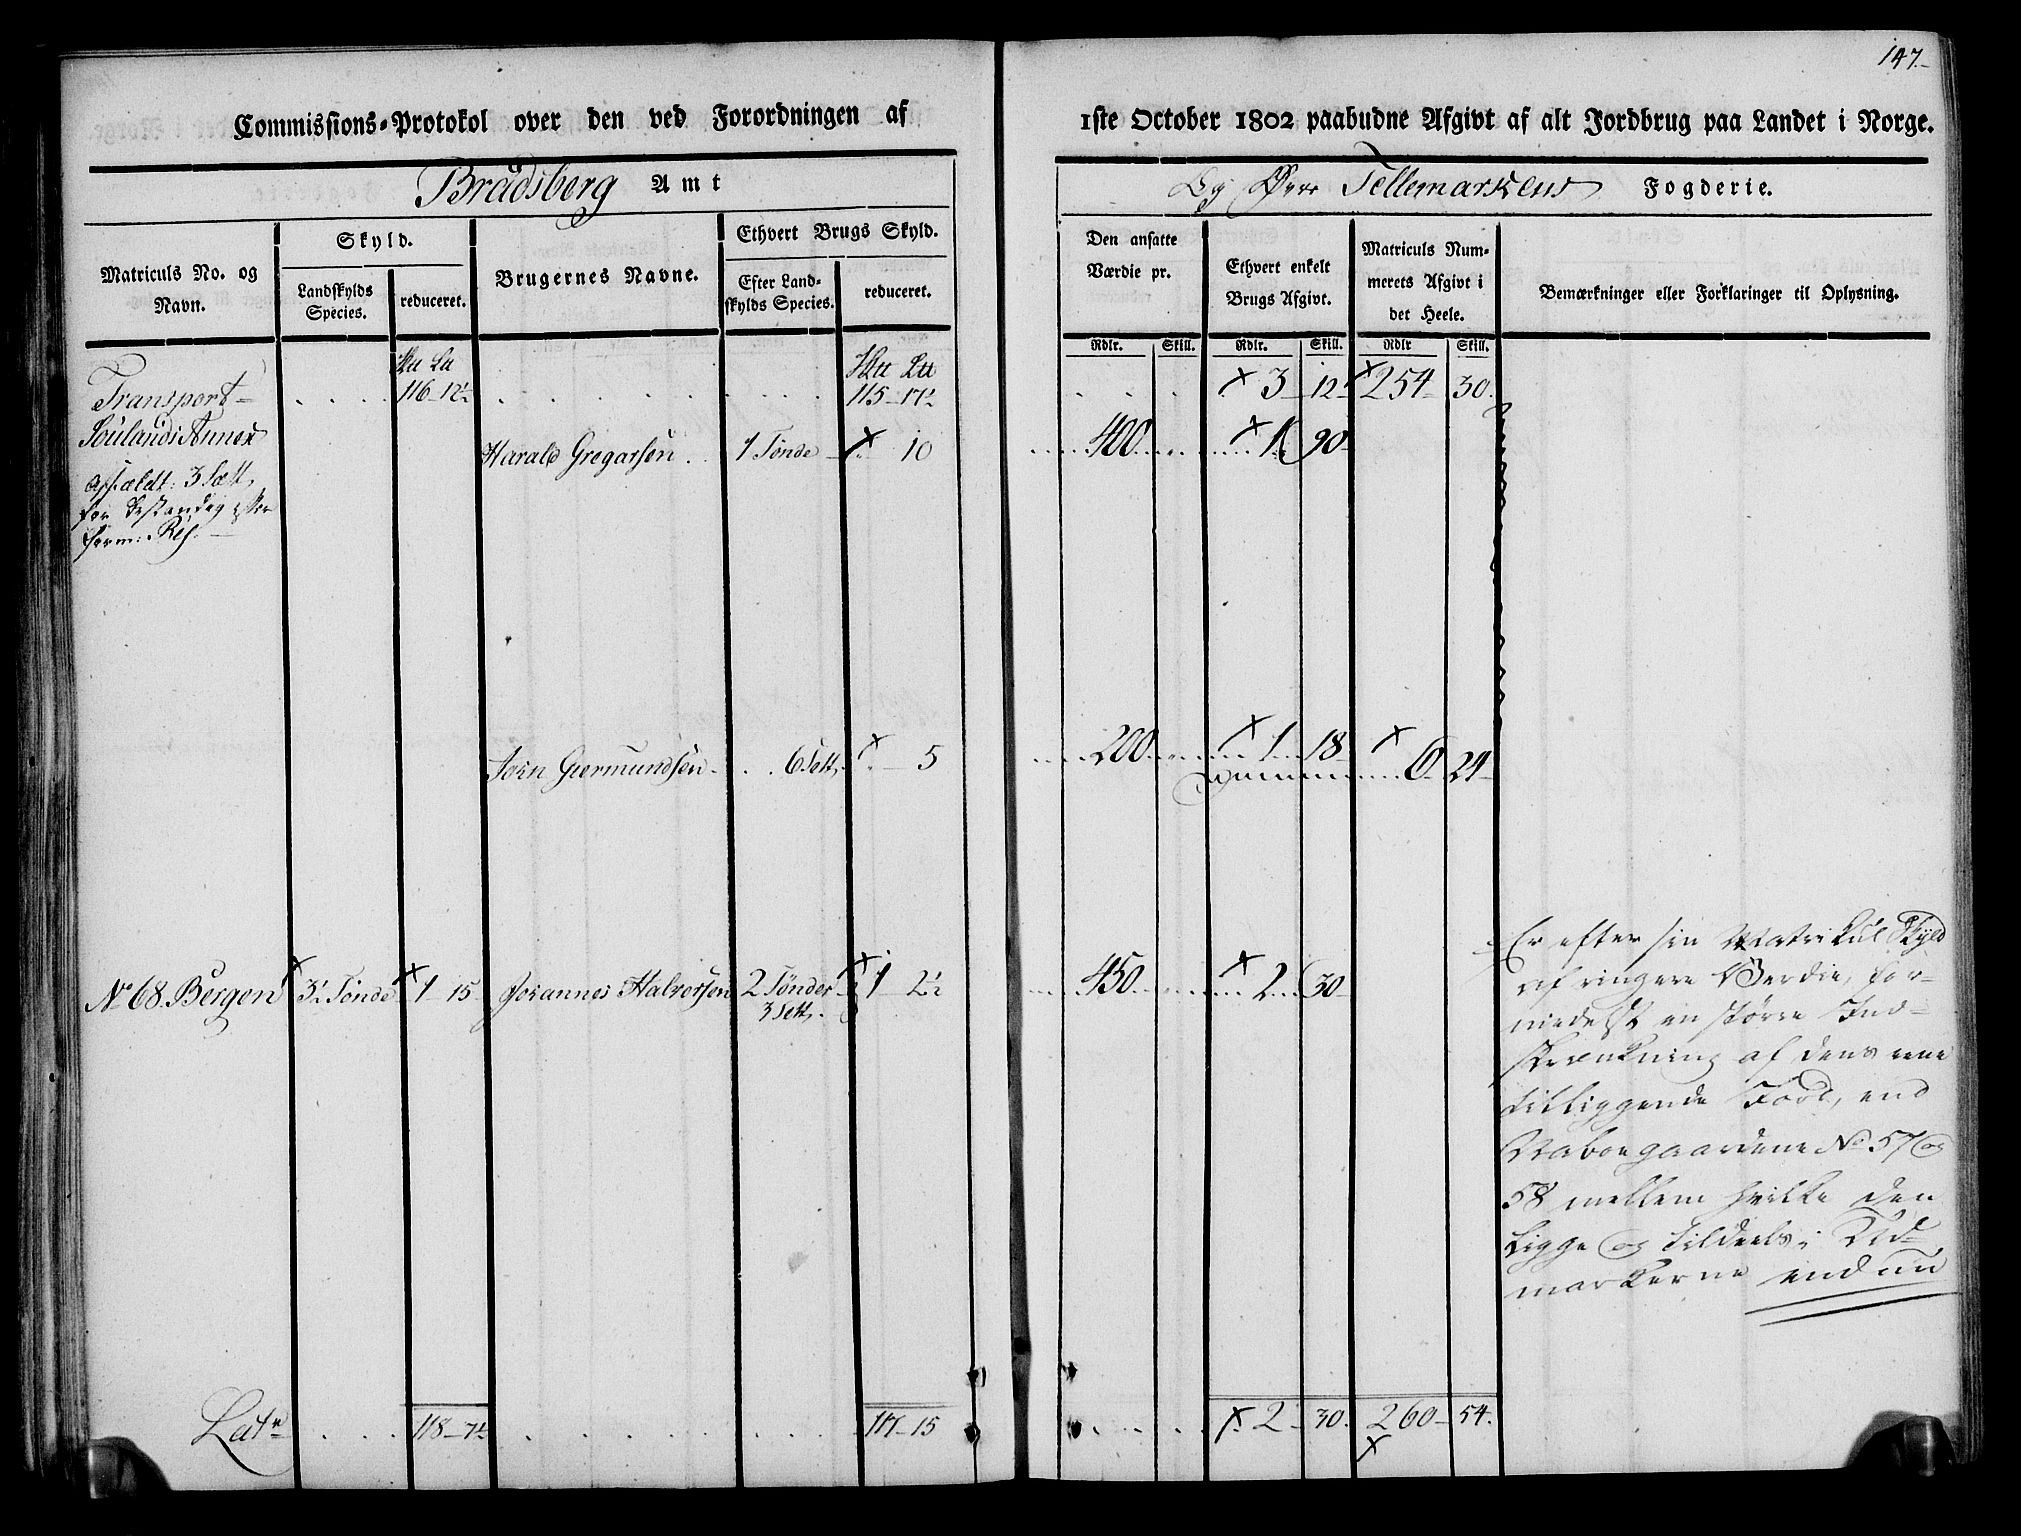 147.
Commissions-Protokol over den ved Forordningen af
1ste October 1802 paabudne Afgivt af alt Jordbrug paa Landet i Norge.
Bradsberg Amt
Og Øvre Tellemarkens Fogderie.
Matriculs No. og Navn.
Skyld.
Landskylds Species.
reduceret.
Brugernes Navne.
Ethvert Brugs Skyld.
Efter Landskylds Species.
reduceret.
Den ansatte Værdie pr.
Ethvert enkelt Brugs Afgivt.
Matriculs Nummerets Afgivt i det Heele.
Bemærkninger eller Forklaringer til Oplysning.
Rdlr. Skill. Rdlr. Skill. Rdlr Skill.
Transport 116 12½ 115 17½ 3 12 254 30.
Soulands Annex
Harald Gregarsen 1 Tønde 10 400 1 90
3 Sett,
for bestandig efter
Res.
Giermundsen 6 Sett, 5 200 1 18
6 24
No 68. Bergen 3½ Tønde 1 15 Johannes Halvorsen 2 Tønder 3 Sett. 1 2½ 450 2 30
Er efter sin Matrikul Skyld
af ringere Verdie, for-
midelst en større Ind-
skrænkning af dens
tilliggende Jord, end
Naboegaardene No 57 og
58 mellem hvilke den
Ligge og tildeels i Ud-
markerne end nu
Lat. 118 7½ 117 15 2 30. 260 54.